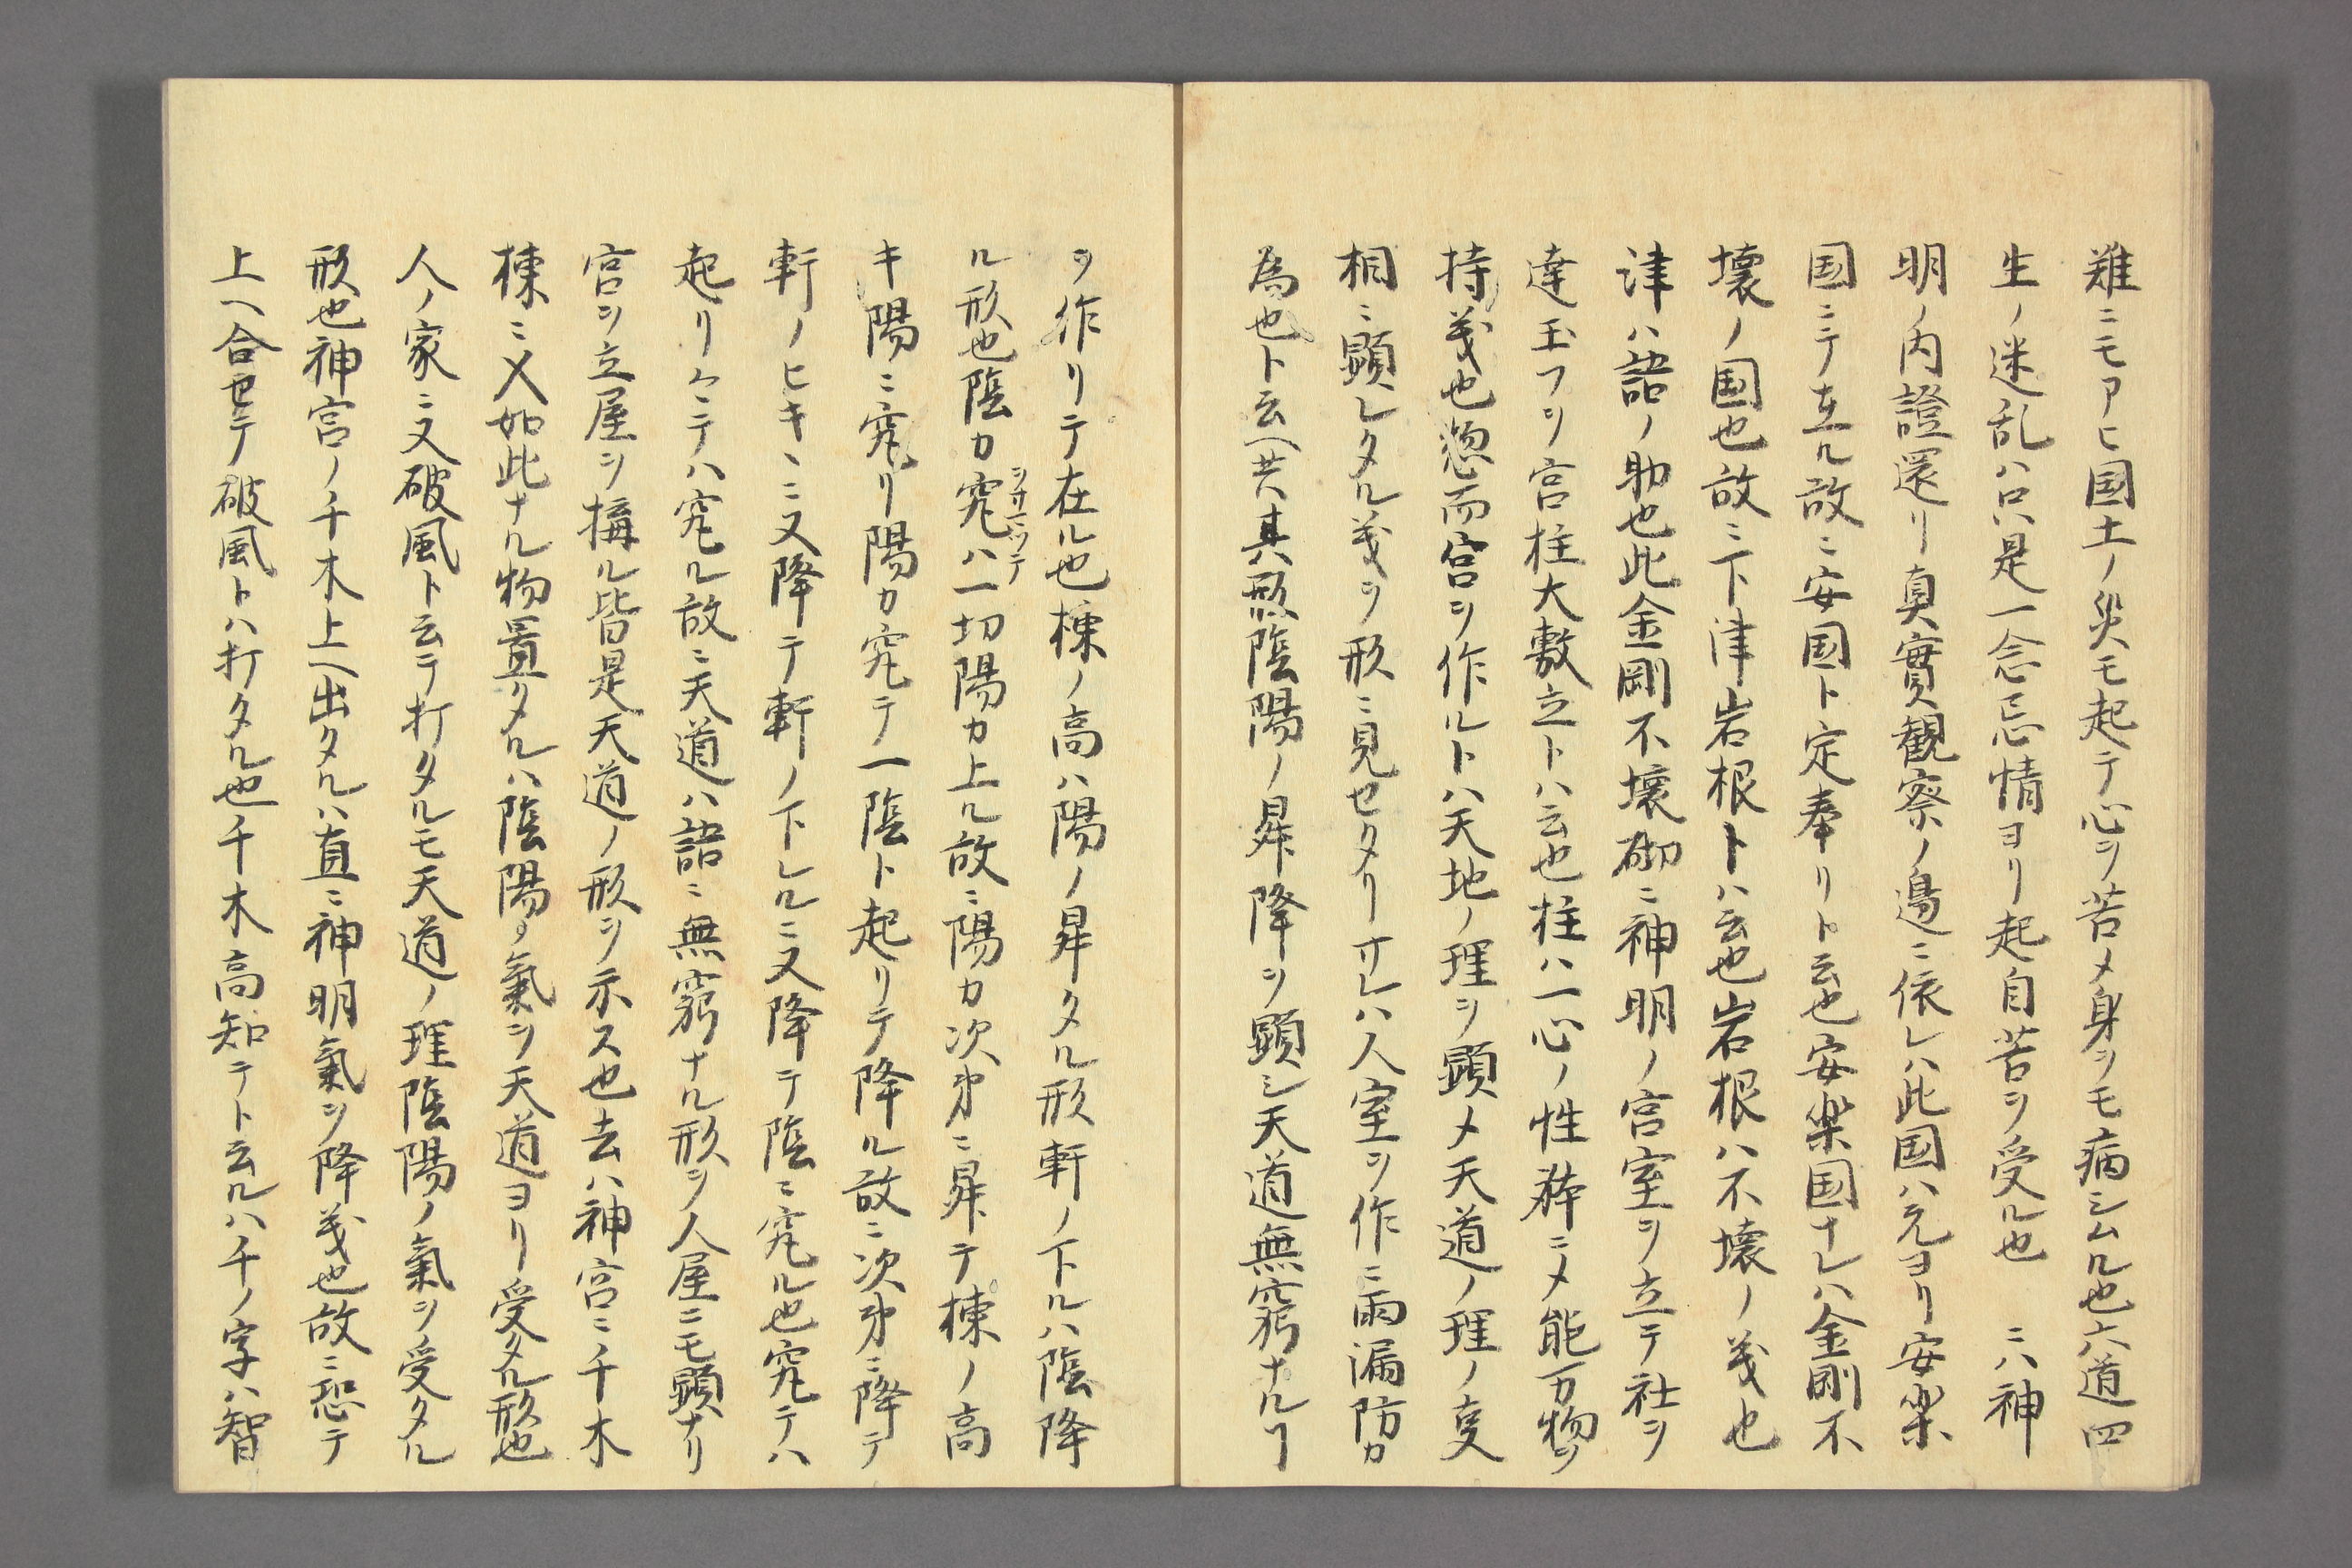 難ニモアヒ国土ノ災モ起テ心ヲ苦メ身ヲモ病シムル也六道四
生ノ迷乱ハ只是一念忌情ヨリ起自苦ヲ受ル也　ニハ神
明ノ内證還リ真實観察ノ邊ニ依レハ此国ハ元ヨリ安楽
国ニテ在ル故ニ安国ト定奉リト云也安楽国ナレハ金剛不
壊ノ国也故ニ下津岩根トハ云也岩根ハ不壊ノ義也
津ハ語ノ助也此金剛不壊砌ニ神明ノ宮室ヲ立テ社ヲ
達玉フヲ宮柱大敷立トハ云也柱ハ一心ノ性躰ニメ能万物ヲ
持義也惣而宮ヲ作ルトハ天地ノ理ヲ顕メ天道ノ理ノ叓
相ニ顕レタル義ヲ形ニ見セタリサレハ人室ヲ作ニ雨漏防カ
為也ト云ヘ共其形陰陽ノ昇降ヲ顕シ天道無窮ナルヿ
ヲ作リテ在ル也棟ノ高ハ陽ノ昇タル形軒ノ下ルハ陰降
ル形也陰カ究ハ一切陽カ上ル故ニ陽カ次第ニ昇テ棟ノ高
キ陽ニ究リ陽カ究テ一陰ト起リテ降ル故ニ次第ニ降テ
軒ノヒキヽニ又降テ軒ノ下レルニ又降テ陰ニ究ル也究テハ
起リ々ニテハ究ル故ニ天道ハ語ニ無窮ナル形ヲ人屋ニモ顕ナリ
宮ヲ立屋ヲ搆ル皆是天道ノ形ヲ示ス也去ハ神宮ニ千木
棟ニ乂如此ナル物置タルハ陰陽ノ氣ヲ天道ヨリ受タル形也
人ノ家ニ又破風ト云テ打タルモ天道ノ理陰陽ノ氣ヲ受タル
形也神宮ノ千木上ヘ出タルハ直ニ神明氣ヲ降義也故ニ恐テ
上ヘ合セテ破風トハ打タル也千木高知テト云ルハ千ノ字ハ智